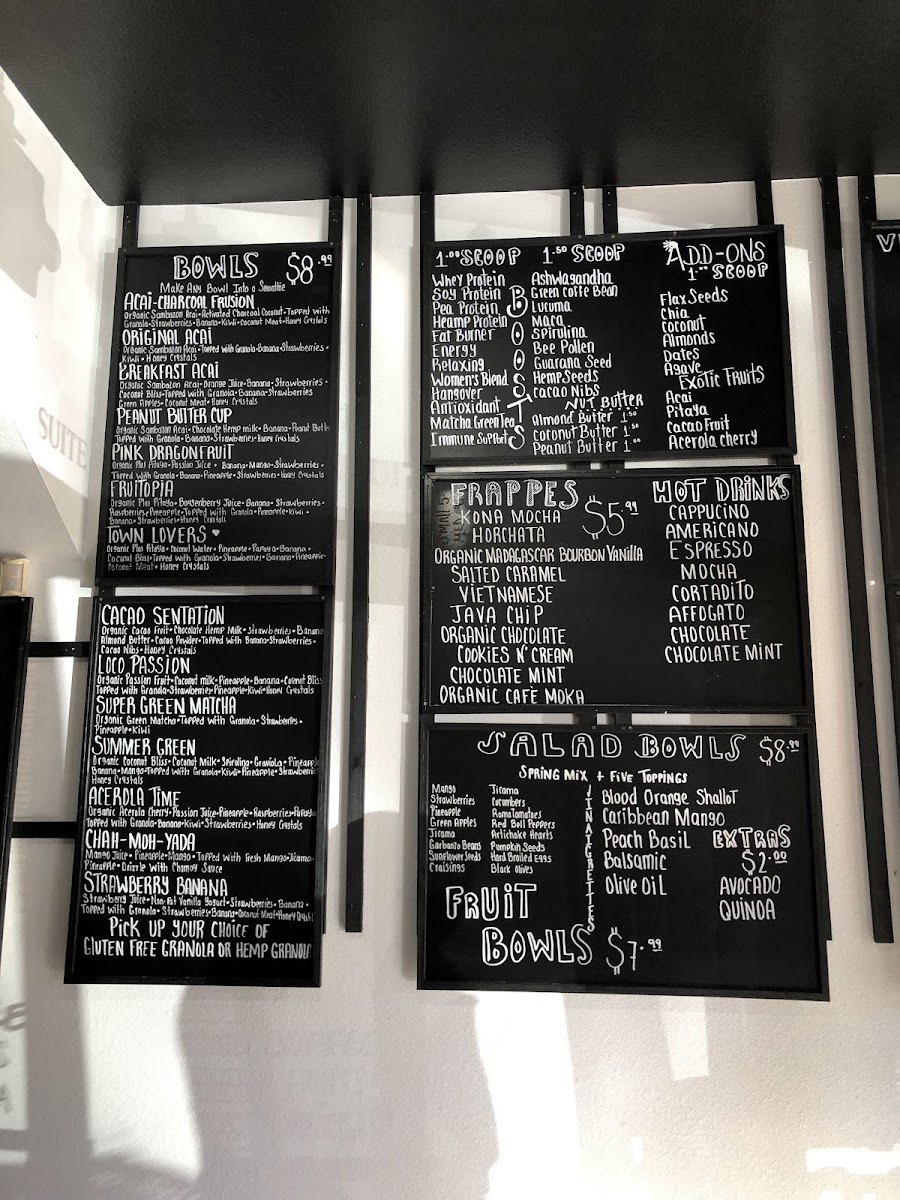 SUITE
BOWLS $8.99
Make Any Bowl Into a Smoothie
ACAI-CHARCOAL FRUSION
Organic Sambazon Acai • Activated Charcoal Coconut • Topped with
Granola • Strawberries • Banana • Kiwi • Coconut Meat • Honey Crystals
ORIGINAL ACAI
Organic Sambazon Acai • Topped with Granola • Banana • Strawberries •
Kiwi • Honey Crystals
BREAKFAST ACAI
Organic Sambazon Acai • Orange Juice • Banana • Strawberries •
Coconut Bliss • Topped with Granola • Banana • Strawberries •
Green Apples • Coconut Meat • Honey Crystals
PEANUT BUTTER CUP
Organic Sambazon Acai • Chocolate Hemp milk • Banana • Peanut
Topped with Granola • Banana • Strawberries • Honey Crystals
PINK DRAGONFRUIT
Organic Plus Pitaya • Passion Juice • Banana • Mango • Strawberries •
Topped with Granola • Banana • Pineapple • Strawberries • Honey Crystals
FRUTOPIA
Organic Plus Pitaya • Boysenberry Juice • Banana • Strawberries •
Raspberries • Pineapple • Topped with Granola • Pineapple • Kiwi •
Banana • Strawberries • Honey Crystals
TOWN LOVERS ♥
Organic Plus Pitaya • Coconut Water • Pineapple • Papaya • Banana •
Coconut Bliss • Topped with Granola • Strawberries • Banana • Pineapple •
Coconut Meat • Honey Crystals
CACAO SENTATION
Organic Cacao Fruit • Chocolate Hemp Milk • Strawberries • Banana
Almond Butter • Cacao Powder • Topped with Banana • Strawberries •
Cacao Nibs • Honey Crystals
LOCO PASSION
Organic Passion Fruit • Coconut milk • Pineapple • Banana • Coconut Bliss
Topped with Granola • Strawberries • Pineapple • Kiwi • Honey Crystals
SUPER GREEN MATCHA
Organic Green Matcha • Topped with Granola • Strawberries •
Pineapple • Kiwi
SUMMER GREEN
Organic Coconut Bliss • Coconut Milk • Spirulina • Graviola • Pineapple
Banana • Mango • Topped with Granola • Kiwi • Pineapple • Strawberries
Honey Crystals
ACEROLA TIME
Organic Acerola Cherry • Passion Juice • Pineapple • Raspberries • Papaya
Topped with Granola • Banana • Kiwi • Strawberries • Honey Crystals
CHAH-MOH-YADA
Mango Juice • Pineapple • Mango • Topped with Fresh Mango • Jicama •
Pineapple • Drizzle with Chamoy Sauce
STRAWBERRY BANANA
Strawberry Juice • Non-Fat Vanilla Yogurt • Strawberries • Banana •
Topped with Granola • Strawberries • Banana • Coconut Meat • Honey Crystals
Pick up your choice of
Gluten free granola or hemp granola
1.00 SCOOP
Whey Protein
Soy Protein
Pea Protein
Heamp Protein
Fat Burner
Energy
Relaxing
Women's Blend
Hangover
Antioxidant
Matcha Green Tea
Immune Support
BOOSTS
1.50 SCOOP
Ashwagandha
Green Coffe Bean
Lucuma
Maca
Spirulina
Bee Pollen
Guarana Seed
Hemp Seeds
cacao Nibs
NUT Butter
Almond Butter 1.50
Coconut Butter 1.50
Peanut Butter 1.00
ADD-ONS
1.00 SCOOP
Flax Seeds
Chia
Coconut
Almonds
Dates
Agave
Exotic Fruits
Acai
Pitaya
Cacao Fruit
Acerola cherry
FRAPPES $5.99
KONA MOCHA
HORCHATA
ORGANIC MADAGASCAR BOURBON VANILLA
SALTED CARAMEL
VIETNAMESE
JAVA CHIP
ORGANIC CHOCOLATE
COOKIES N' CREAM
CHOCOLATE MINT
ORGANIC CAFÈ MOKA
HOT DRINKS
CAPPUCINO
AMERICANO
ESPRESSO
MOCHA
CORTADITO
AFFOGATO
CHOCOLATE
CHOCOLATE MINT
SALAD BOWLS $8.99
Spring Mix + Five Toppings
Mango
Strawberries
Pineapple
Green Apples
Jicama
Garbanzo Beans
Sunflower Seeds
Craisings
Jicama
Cucumbers
Roma Tomatoes
Red Bell Peppers
Artichoke Hearts
Pumpkin Seeds
Hard Broiled Eggs
Black Olives
Blood Orange Shallot
Caribbean Mango
Peach Basil
Balsamic
Olive Oil
EXTRAS
$2.00
AVOCADO
QUINOA
FRUIT
BOWLS $7.99